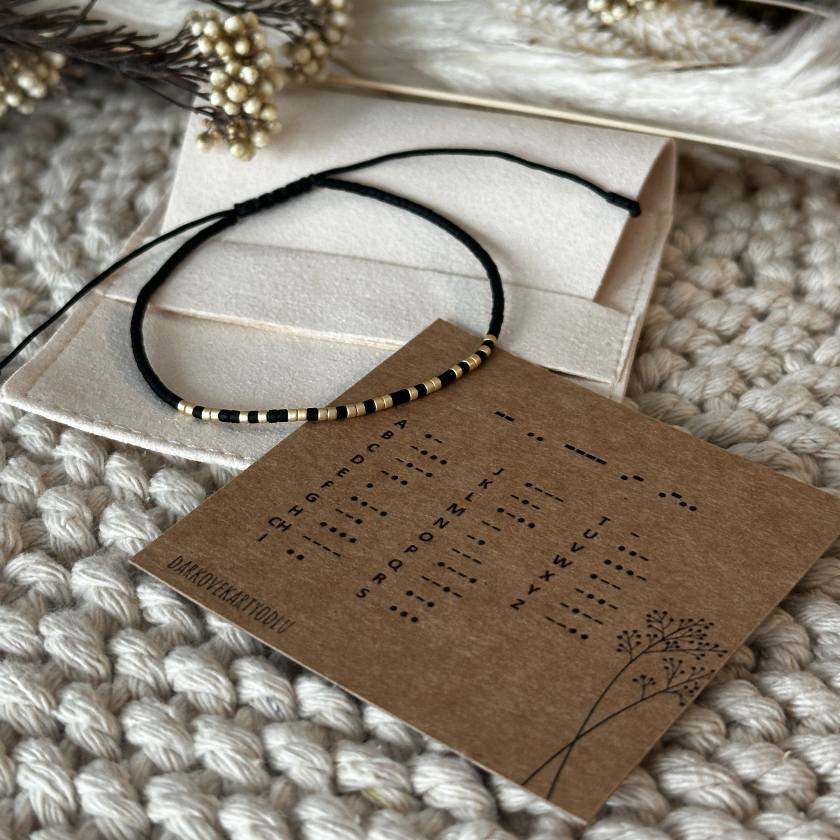 A .-
B -...
C -.-.
D -..
E .
F ..-.
G --.
H ....
CH ----
I ..
J .---
K -.-
L .-..
M --
N -.
O ---
P .--.
Q --.-
R .-.
S ...
T -
U ..-
V ...-
W .--
X -..-
Y -.--
Z --..
DARKOVEKARTYODLU